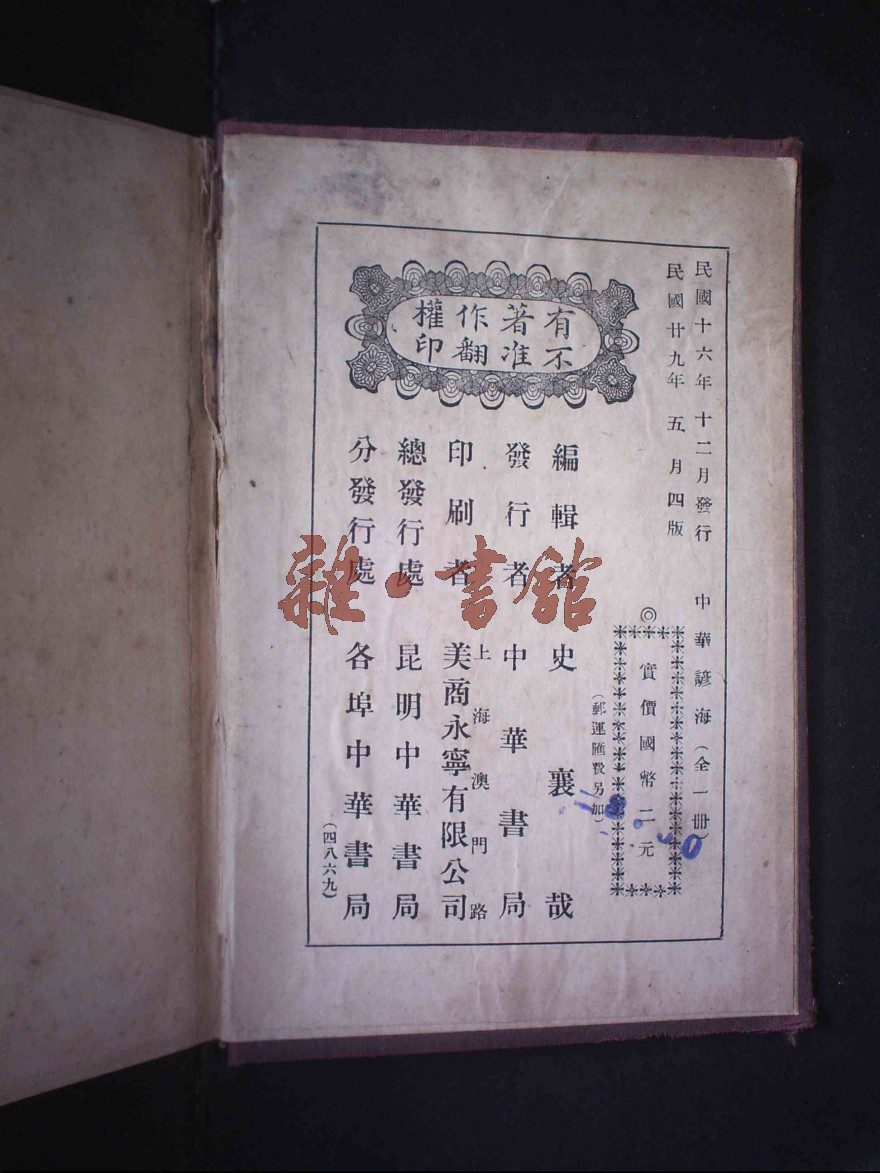 民國十六年十二月發行
民國廿九年五月四版
中華諺海（全一冊）
◎實價國幣二元
（郵運匯費另加）
有著作權
不准翻印
編輯者 史襄哉
發行者 中華書局
印刷者 上海澳門路 美商永寧有限公司
總發行處 昆明中華書局
分發行處 各埠中華書局
（四八六九）
雜·書館